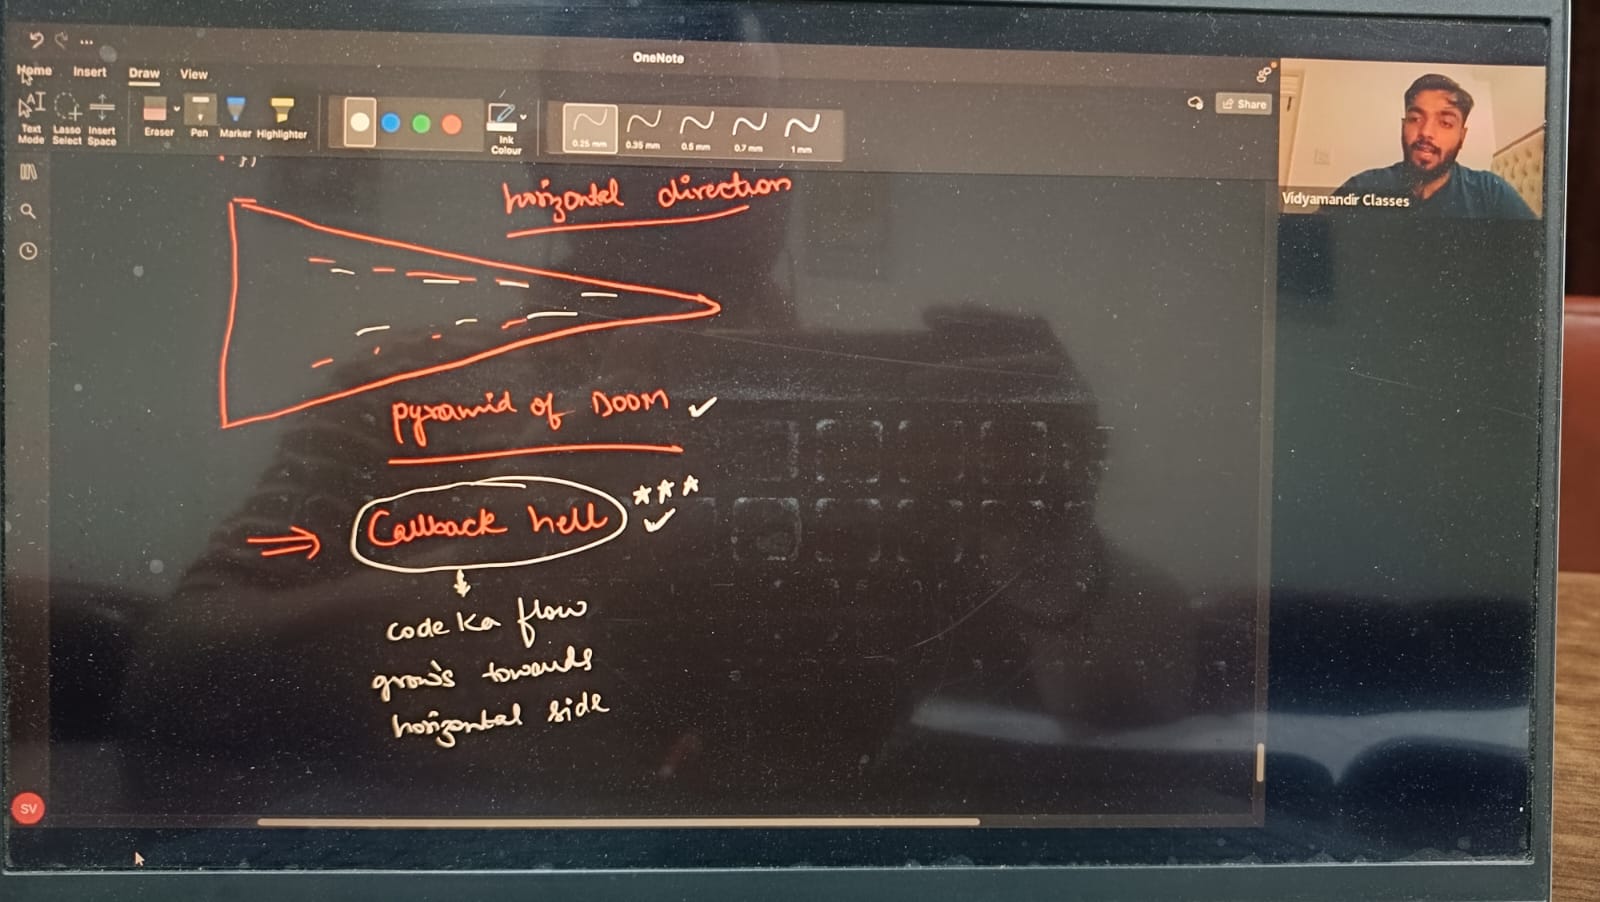 OneNote
Home Insert Draw View
Share
Text Mode
Lasso Select
Insert Space
Eraser
Pen
Marker
Highlighter
Ink Colour
0.25 mm
0.35 mm
0.5 mm
0.7 mm
1 mm
Vidyamandir Classes
})
horizontal direction
pyramid of DOOM
Callback hell
code ka flow
grows towards
horizontal side
SV